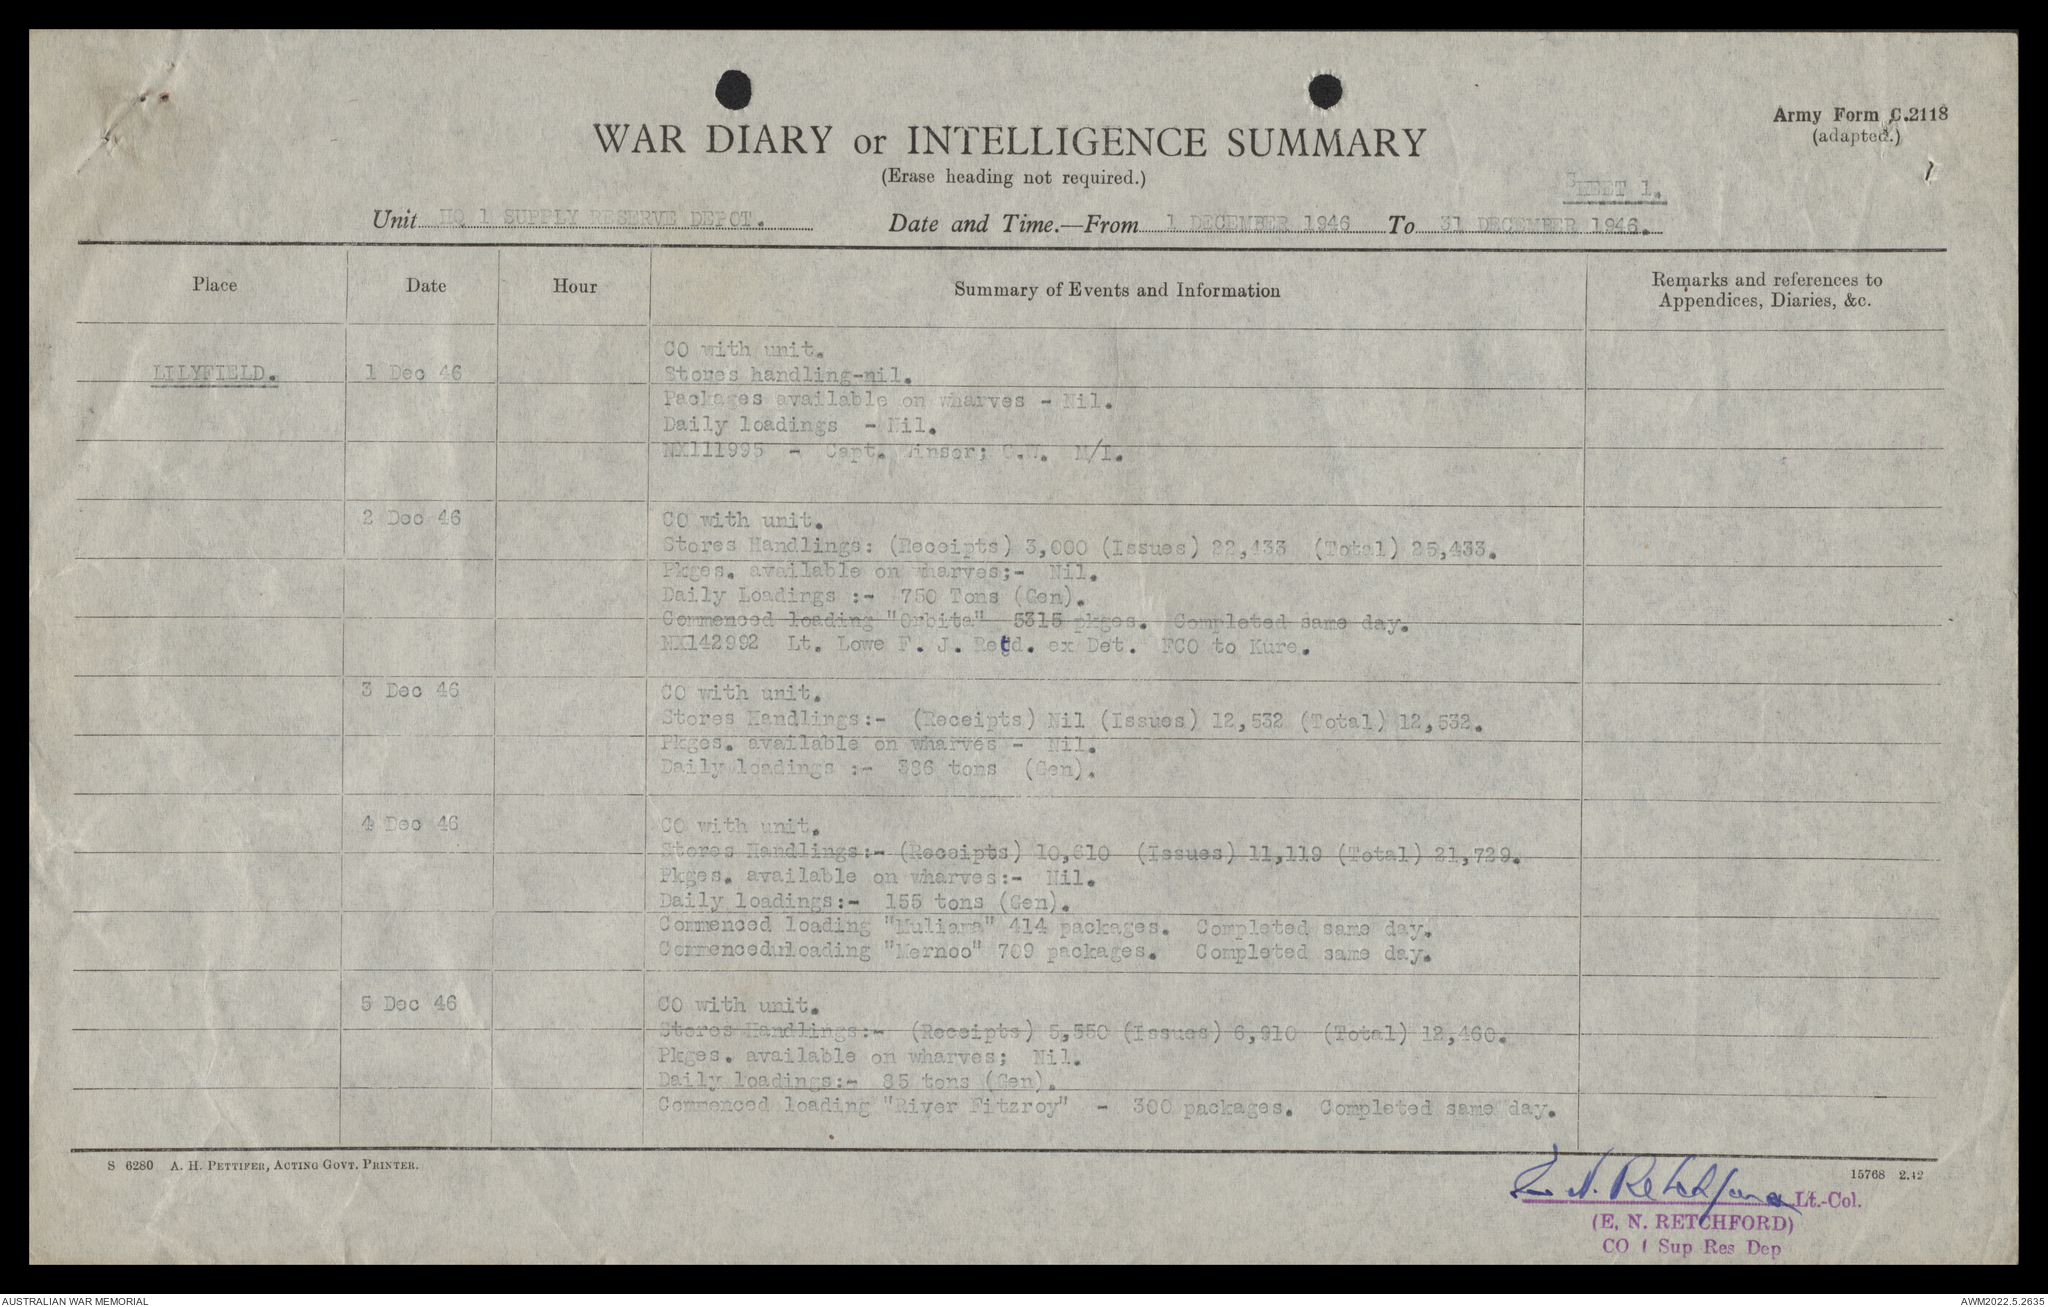 WAR DIARY or INTELLIGENCE SUMMARY
(Erase heading not required.)
Army Form C.2118
(adapted.)
1
SHEET 1.
Unit HQ 1 SUPPLY RESERVE DEPOT. Date and Time.—From 1 DECEMBER 1946 To 31 DECEMBER 1946.
Place Date Hour Summary of Events and Information Remarks and references to Appendices, Diaries, &c.
CO with unit.
LILYFIELD. 1 Dec 46 Stores handling-nil.
Packages available on wharves - Nil.
Daily loadings - Nil.
NX111995 - Capt. C.W. M/I.
2 Dec 46 CO with unit.
Stores Handlings: (Receipts) 3,000 (Issues) 22,433 (Total) 25,433.
Pkges. available on wharves;- Nil.
Daily Loadings :- 750 Tons (Gen).
Commenced loading "Orbita" 5315 pkges. Completed same day.
NX142992 Lt. Lowe F. J. Retd. ex Det. FCO to Kure.
3 Dec 46 CO with unit.
Stores Handlings:- (Receipts) Nil (Issues) 12,532 (Total) 12,532.
Pkges. available on wharves - Nil.
Daily loadings :- 386 tons (Gen).
4 Dec 46 CO with unit.
Stores Handlings:- (Receipts) 10,610 (Issues) 11,119 (Total) 21,729.
Pkges. available on wharves:- Nil.
Daily loadings:- 155 tons (Gen).
Commenced loading "Muliama" 414 packages. Completed same day.
Commencedunloading "Mernoo" 709 packages. Completed same day.
5 Dec 46 CO with unit.
Stores Handlings:- (Receipts) 5,550 (Issues) 6,910 (Total) 12,460.
Pkges. available on wharves; Nil.
Daily loadings:- 85 tons (Gen).
Commenced loading "River Fitzroy" - 300 packages. Completed same day.
S 6280 A. H. PETTIFER, ACTING GOVT. PRINTER.
15768 2.42
E. N. Retchford Lt.-Col.
(E. N. RETCHFORD)
CO 1 Sup Res Dep
AUSTRALIAN WAR MEMORIAL
AWM2022.5.2635